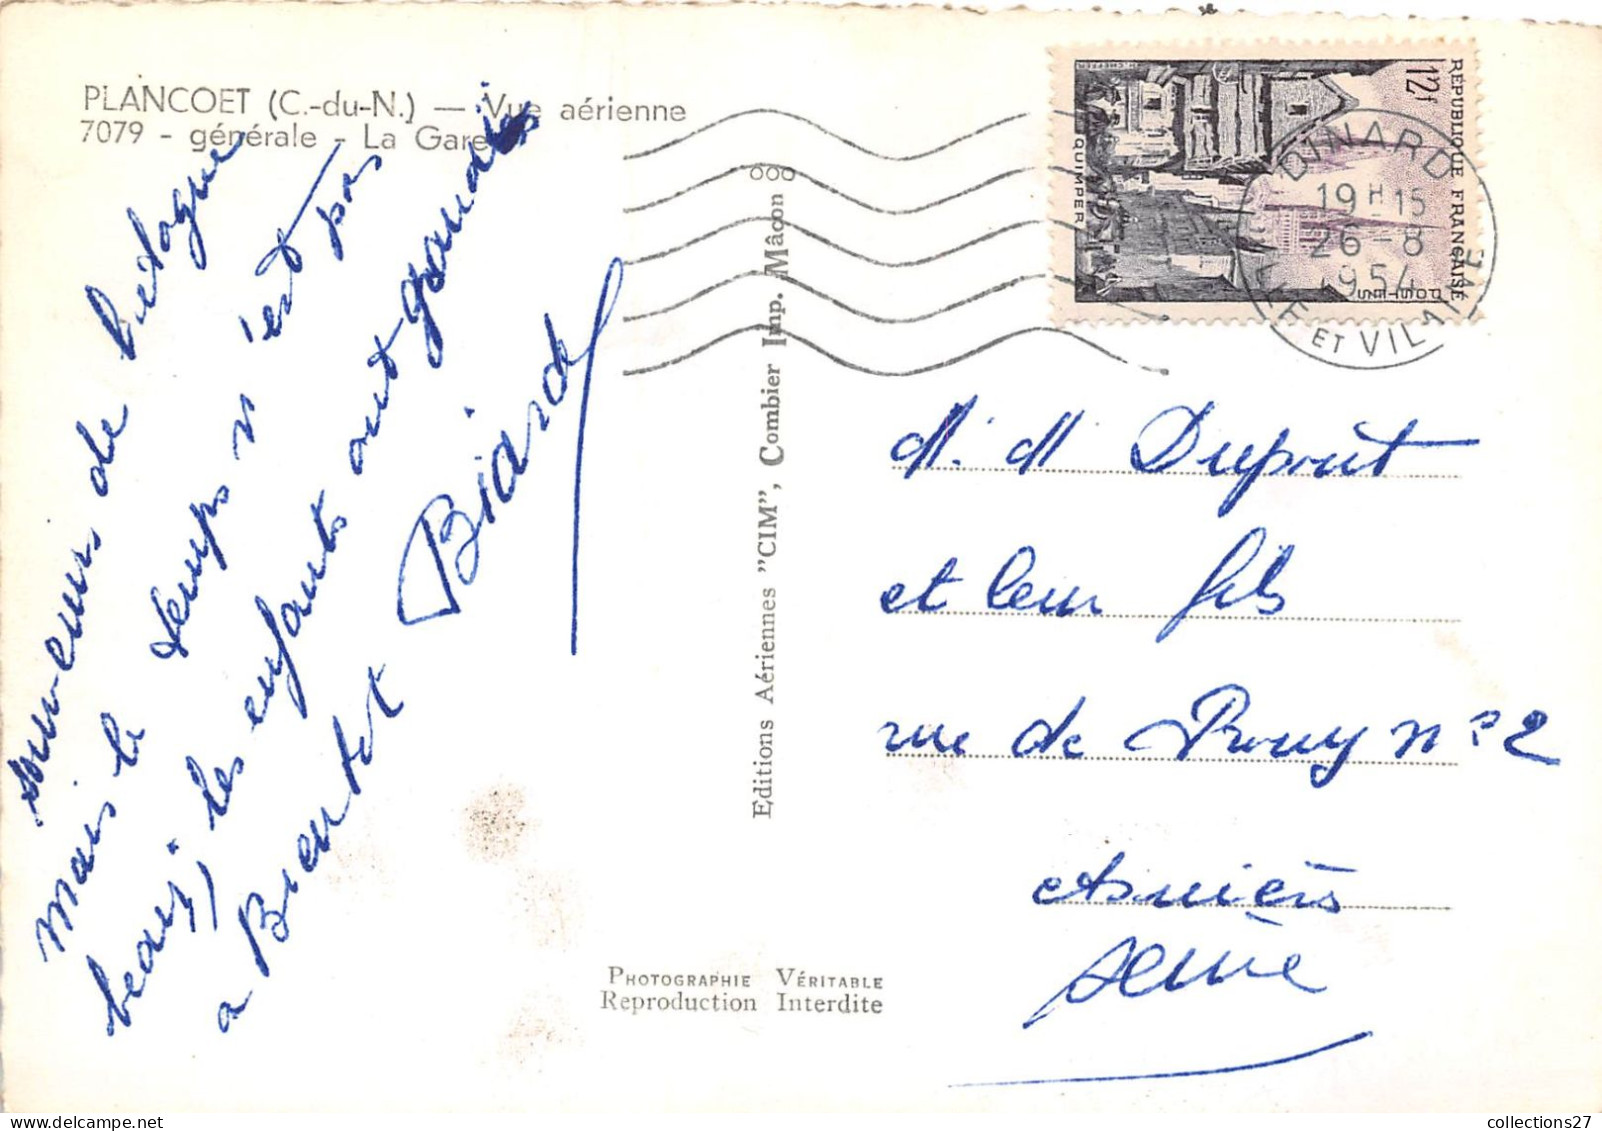 PLANCOET (C.-du-N.) — Vue aérienne
7079 - générale - La Gare
souvenirs de bretagne
mais le temps n'est pas
beau, les enfants ont grandis
a Bientot
Biard
Editions Aériennes "CIM", Combier Imp. Mâcon
PHOTOGRAPHIE VÉRITABLE
Reproduction Interdite
REPUBLIQUE FRANÇAISE
12f
POSTES
QUIMPER
DINARD
19H15
26-8
1954
ILLE ET VILAINE
M. M Duprut
et leur fils
rue de Prony n° 2
Asnières
Seine
collections27